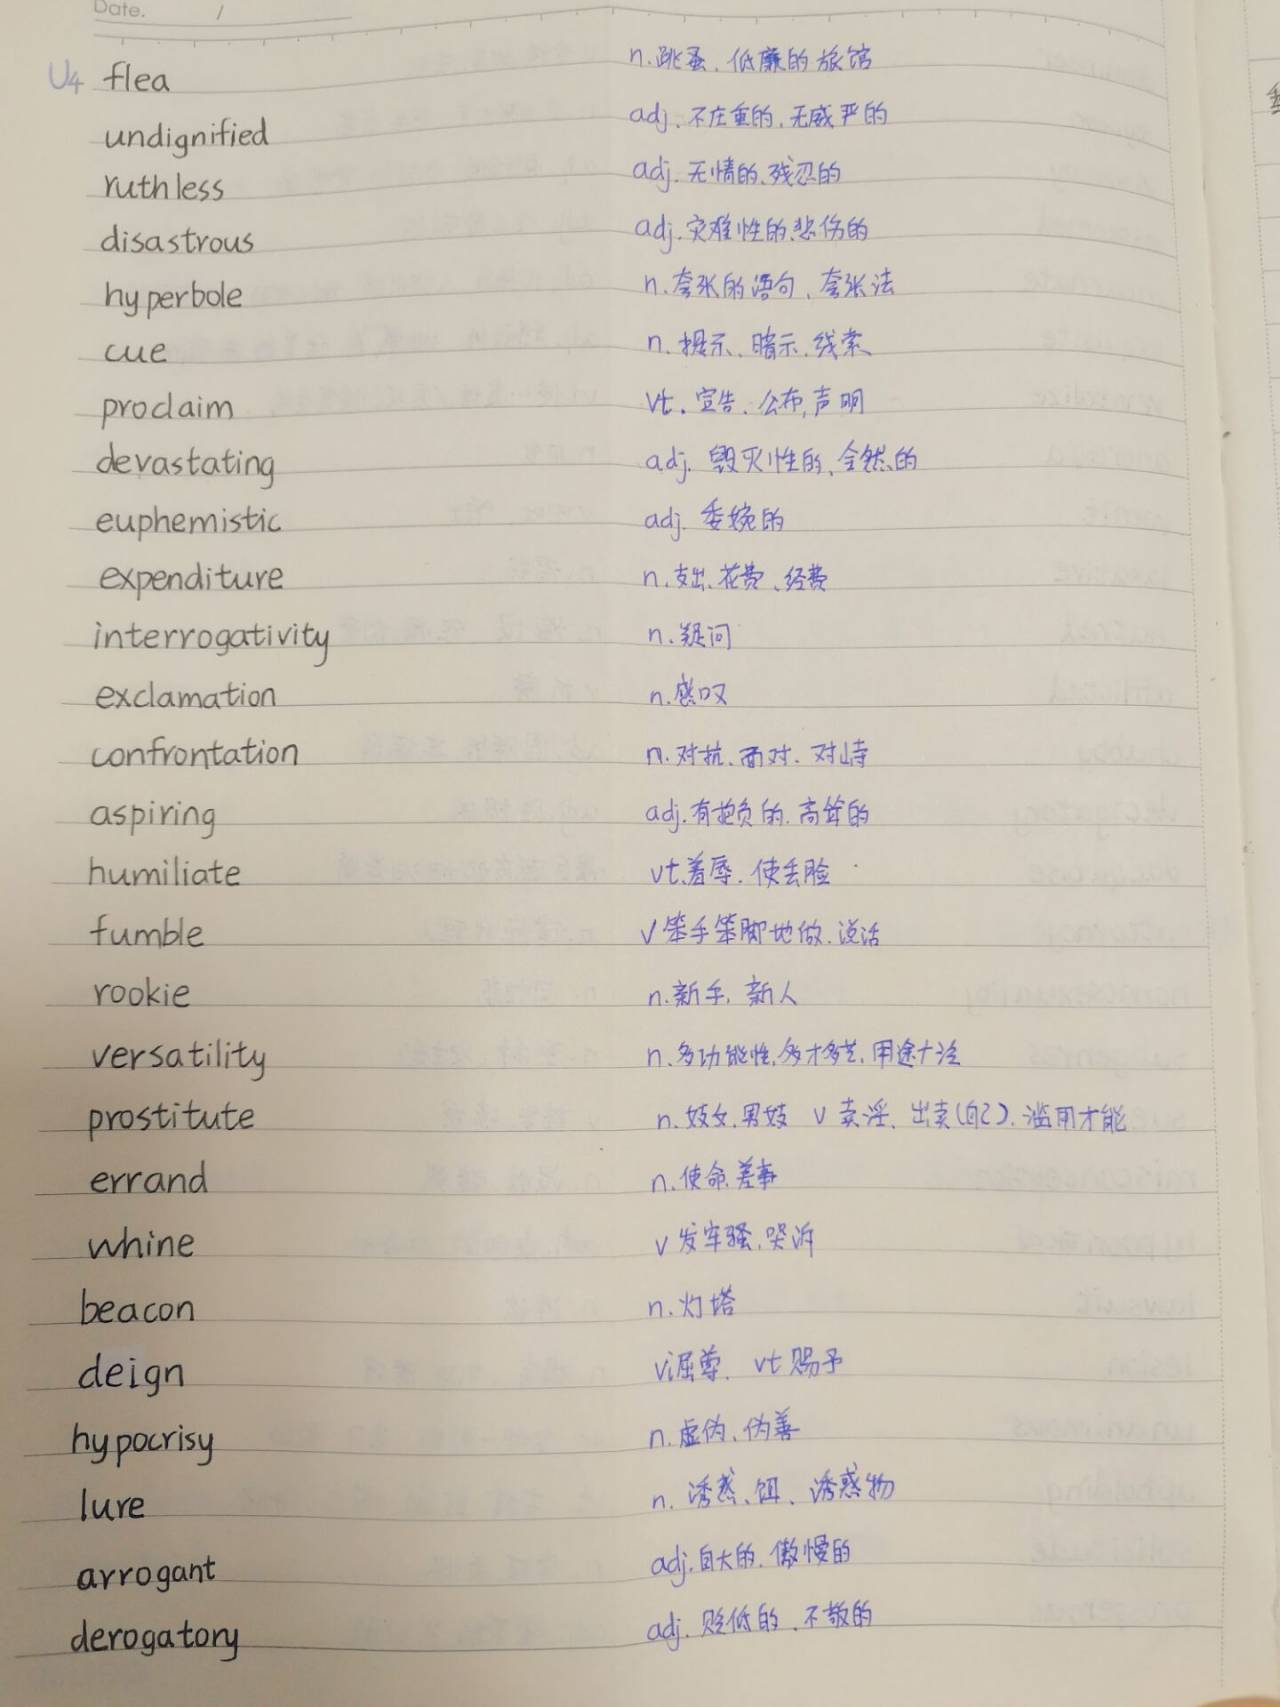 Date. /
U4 flea n. 跳蚤、低廉的旅馆
undignified adj. 不庄重的、无威严的
ruthless adj. 无情的、残忍的
disastrous adj. 灾难性的、悲伤的
hyperbole n. 夸张的语句、夸张法
cue n. 提示、暗示、线索
proclaim vt. 宣告、公布、声明
devastating adj. 毁灭性的、全然的
euphemistic adj. 委婉的
expenditure n. 支出、花费、经费
interrogativity n. 疑问
exclamation n. 感叹
confrontation n. 对抗、面对、对峙
aspiring adj. 有抱负的、高耸的
humiliate vt. 羞辱、使丢脸
fumble v 笨手笨脚地做、说话
rookie n. 新手, 新人
versatility n. 多功能性, 多才多艺, 用途广泛
prostitute n. 妓女, 男妓 v 卖淫、出卖(自己)、滥用才能
errand n. 使命、差事
whine v 发牢骚, 哭诉
beacon n. 灯塔
deign vi 屈尊、vt 赐予
hypocrisy n. 虚伪、伪善
lure n. 诱惑、饵、诱惑物
arrogant adj. 自大的、傲慢的
derogatory adj. 贬低的、不敬的